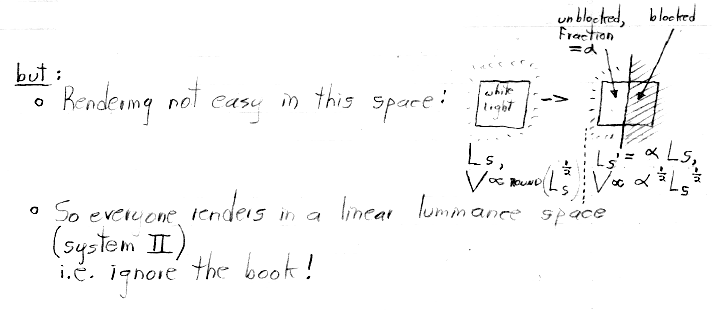 unblocked, blocked
Fraction
= α
but:
o Rendering not easy in this space:
white
light
->
Ls, Ls' = α Ls,
V ∝ ROUND(Ls^½) V ∝ α^½ Ls^½
o So everyone renders in a linear luminance space
(system II)
i.e. ignore the book!